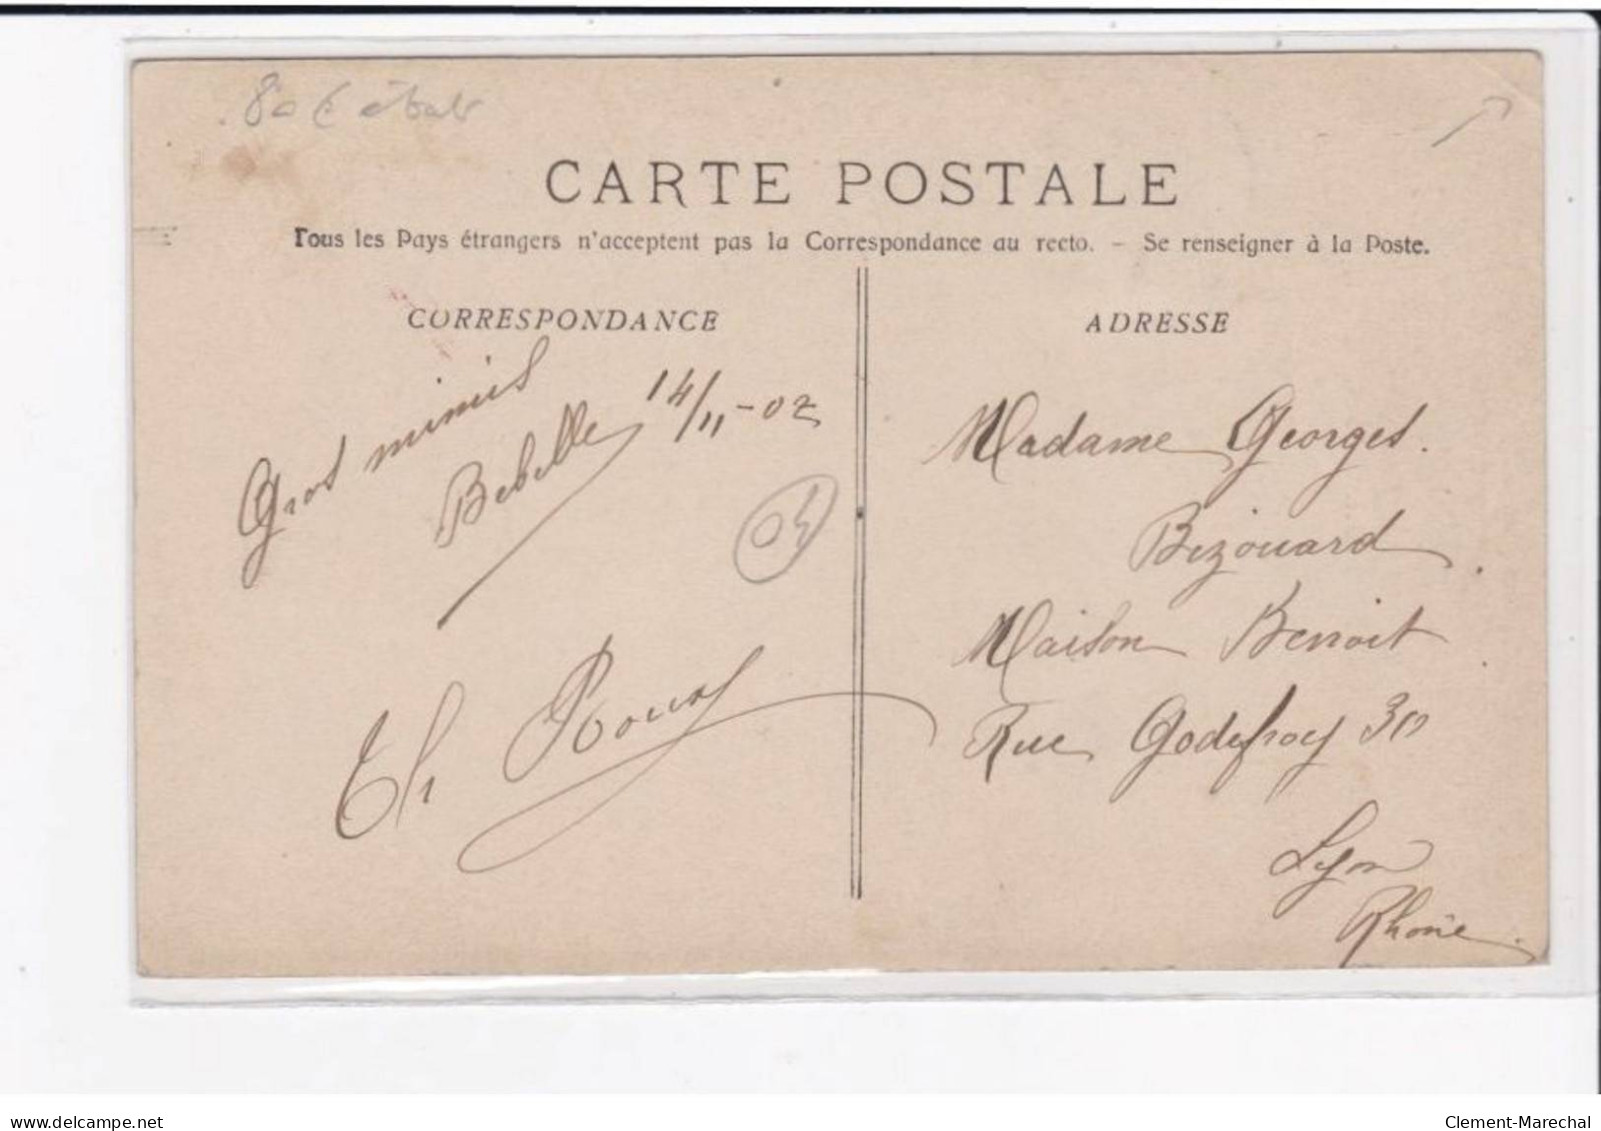 CARTE POSTALE
Tous les Pays étrangers n'acceptent pas la Correspondance au recto. - Se renseigner à la Poste.
CORRESPONDANCE
Gros mimis
Bebelle 14/11-02
04
Th
ADRESSE
Madame Georges.
Bizouard.
Maison Benoit
Rue Godefroy 30
Lyon
Rhône.
delcampe.net
Clement-Marechal